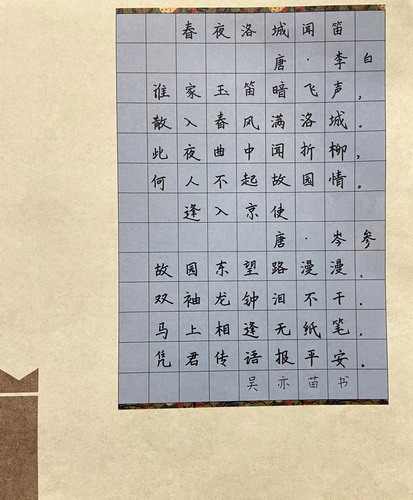 春夜洛城闻笛
唐·李白
谁家玉笛暗飞声，
散入春风满洛城。
此夜曲中闻折柳，
何人不起故园情。
逢入京使
唐·岑参
故园东望路漫漫、
双袖龙钟泪不干。
马上相逢无纸笔，
凭君传语报平安。
吴亦苗书